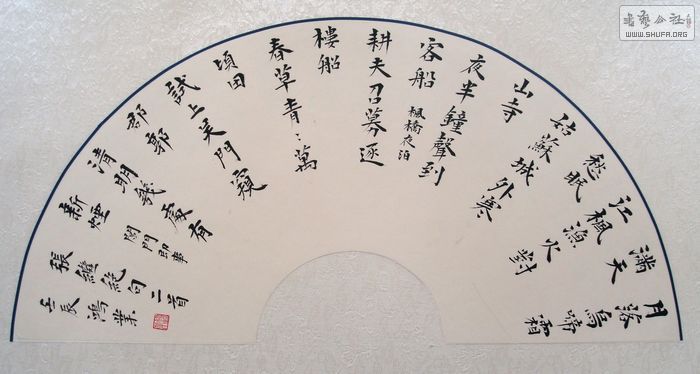 月落烏啼霜
滿天
江楓漁火對
愁眠
姑蘇城外寒
山寺
夜半鐘聲到
客船 楓橋夜泊
耕夫召募逐
樓船
春草青〻萬
頃田
試上吴門窺
郡郭
清明幾處有
新煙 閶門即事
張繼絕句二首
壬辰 鴻業
書藝公社
WWW.SHUFA.ORG